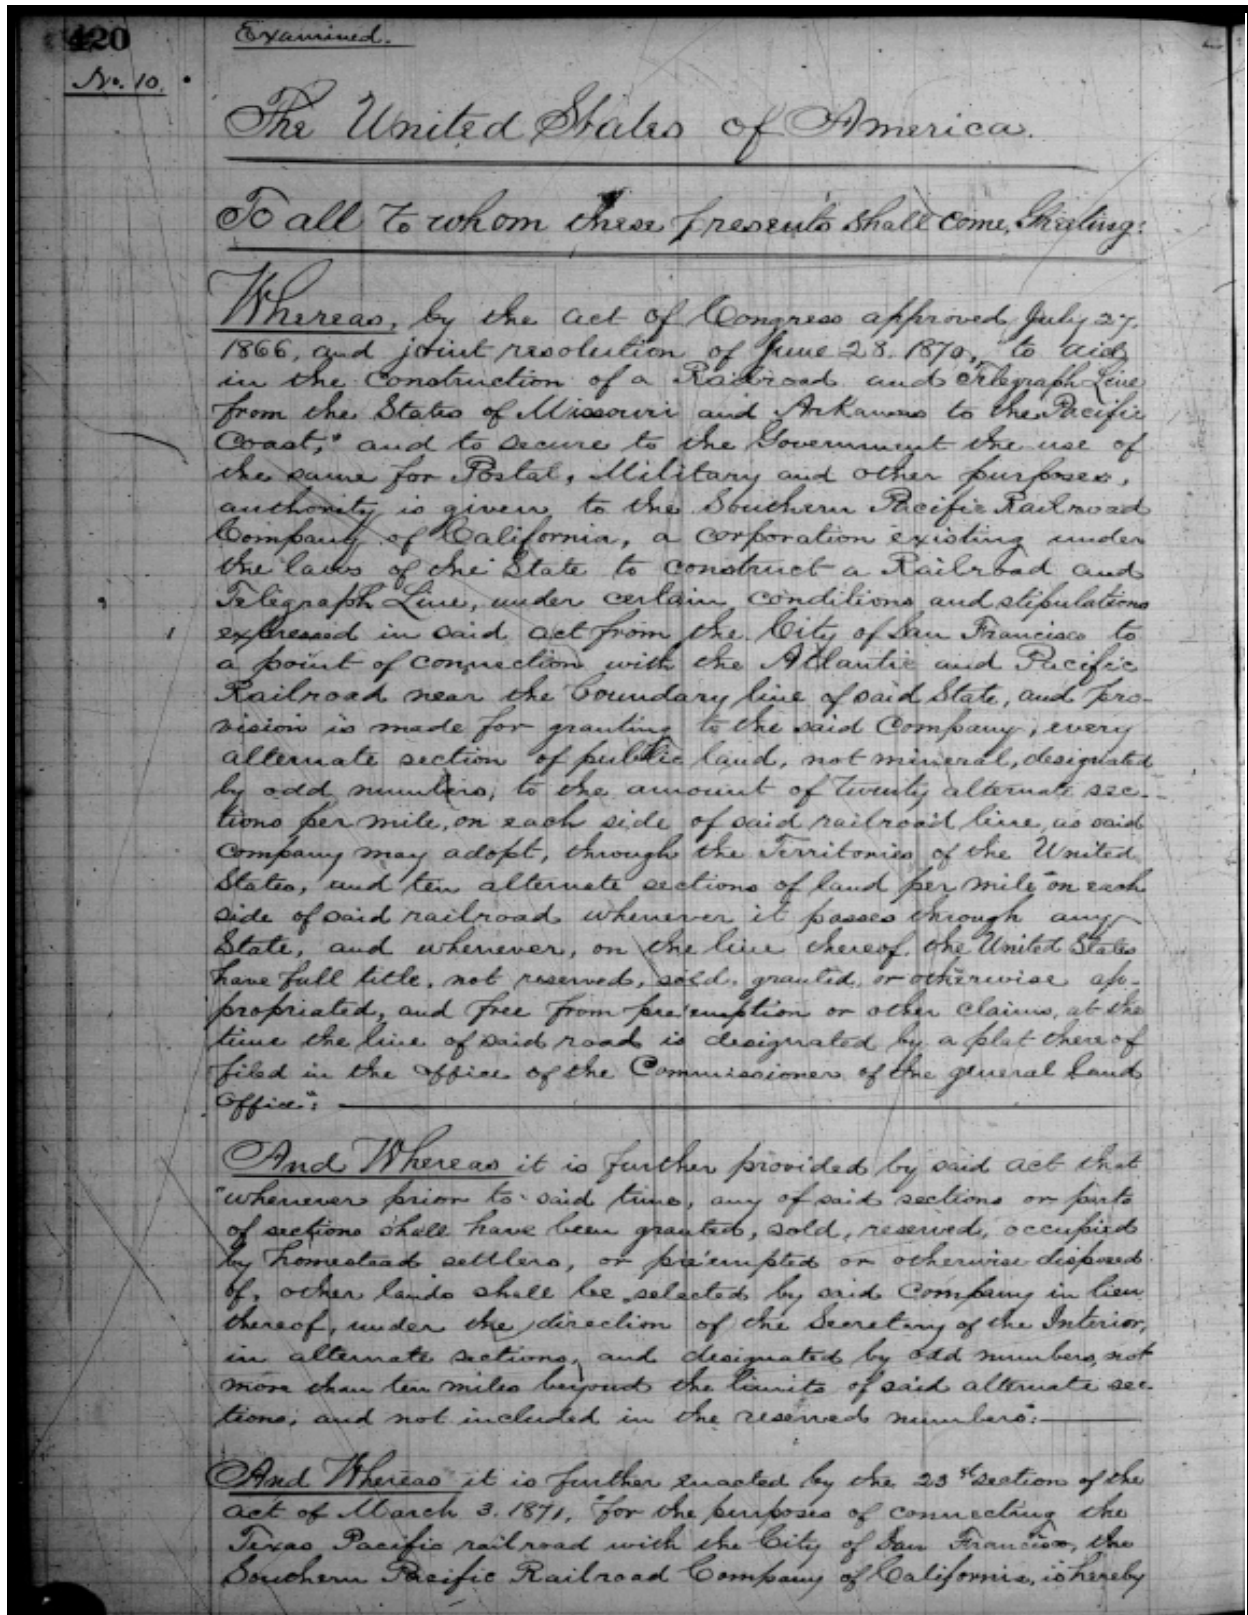 420
Examined.
No. 10.
The United States of America.
To all to whom these presents shall come, Greeting:
Whereas, by the act of Congress approved July 27.
1866, and joint resolution of June 28. 1870, "to aid
in the construction of a Railroad and Telegraph Line
from the States of Missouri and Arkansas to the Pacific
Coast," and to secure to the Government the use of
the same for Postal, Military and other purposes,
authority is given to the Southern Pacific Railroad
Company of California, a corporation existing under
the laws of the State to construct a Railroad and
Telegraph Line, under certain conditions and stipulations
expressed in said act from the City of San Francisco to
a point of connection with the Atlantic and Pacific
Railroad near the boundary line of said State, and pro-
vision is made for granting to the said Company, "every
alternate section of public land, not mineral, designated
by odd numbers, to the amount of twenty alternate sec-
tions per mile, on each side of said railroad line, as said
company may adopt, through the Territories of the United
States, and ten alternate sections of land per mile on each
side of said railroad whenever it passes through any
State, and whenever, on the line thereof, the United States
have full title, not reserved, sold, granted, or otherwise ap-
propriated, and free from pre'emption or other claims, at the
time the line of said road is designated by a plat thereof
filed in the office of the Commissioner of the general Land
Office":
And Whereas it is further provided by said act that
"whenever prior to said time, any of said sections or parts
of sections shall have been granted, sold, reserved, occupied
by homestead settlers, or pre'empted or otherwise disposed
of, other lands shall be selected by said Company in lieu
thereof, under the direction of the Secretary of the Interior,
in alternate sections, and designated by odd numbers, not
more than ten miles beyond the limits of said alternate sec-
tions, and not included in the reserved numbers":
And Whereas it is further enacted by the 23rd section of the
act of March 3. 1871, "for the purposes of connecting the
Texas Pacific railroad with the City of San Francisco, the
Southern Pacific Railroad Company of California, is hereby